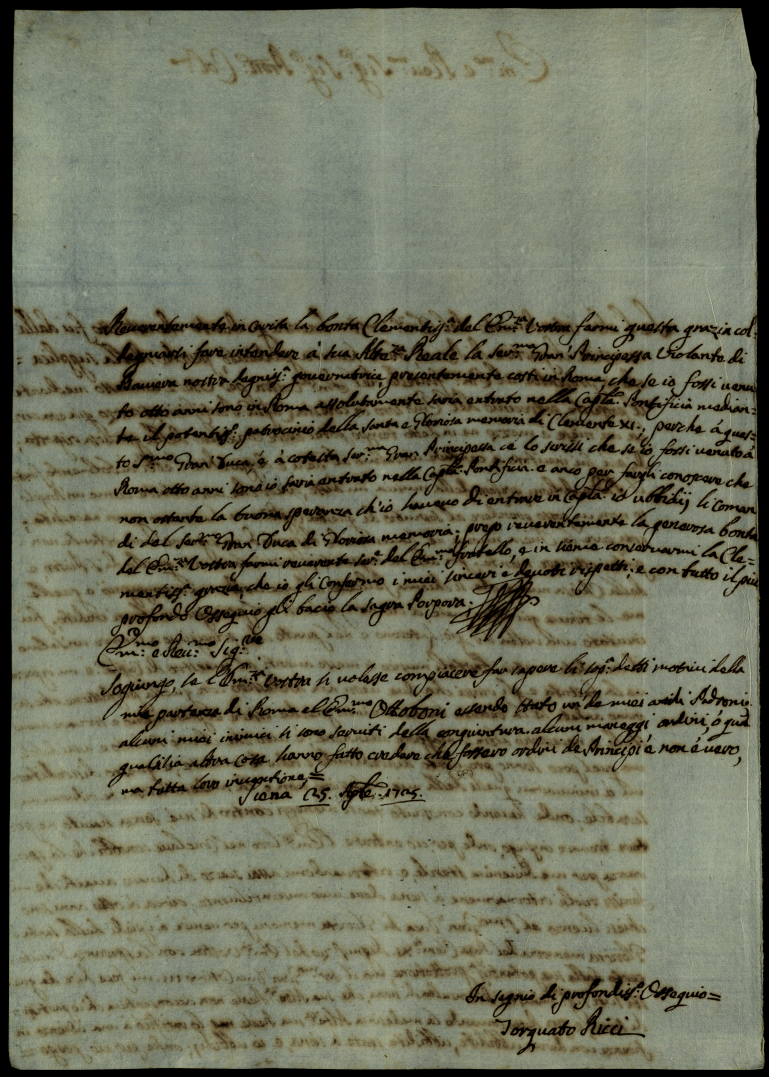 Reverentemente in carita la bonta Clementiss.ª del Em.ª Vostra farmi questa grazia col
degniarsi fare intendere à sua Altez.ª Reale la Ser.ma Gran Principessa Violante di
Baviera nostra degniss.ª governatrice presentemente costi in Roma, che se io fossi venu
to otto anni sono in Roma assolutamente saria entrato nella Capll.ª Pontificia median=
te il potentiss.º patrocinio della Santa e Gloriosa memoria di Clemente XI., perche à ques=
to S.mo Gran Duca, e à cotesta Ser.ma Gran Principessa cè lo scrissi che se io fossi venuto à
Roma otto anni sono io saria entrato nella Capll.ª Pontificia. e anco per fargli conoscere che
non ostante la buona speranza ch'io havevo di entrare in Capll.ª io ubbidij li coman
di del Ser.mo Gran Duca di Gloriosa memoria; prego reverentemente la generosa bonta
del Em.ª Vostra farmi reverente ser.e del Em.mo fratello, e in sieme conservarmi la Cle=
mentiss.ª grazia, che io gli Confermo i miei sinceri e devoti rispetti, e con tutto il più
profondo Ossequio gli bacio la sagra Porpora.
Em.mo e Rev.mo Sig.re
Sogiungo, se l'Em.ª Vostra si volesse compiacere far sapere li sog.i detti motivi della
mia partenza di Roma el Em.mo Ottoboni essendo stato un de miei antichi Padroni.
alcuni miei inimici si sono serviti della congiuntura. alcuni maneggi ordini, ò qual
qualsisia altra cosa, hanno fatto credere che fossero ordini de Principi è non è vero,
ma tutta loro invenzione,=
Siena 25. 1725.
In segnio di profondiss.º Ossequio=
Torquato Ricci